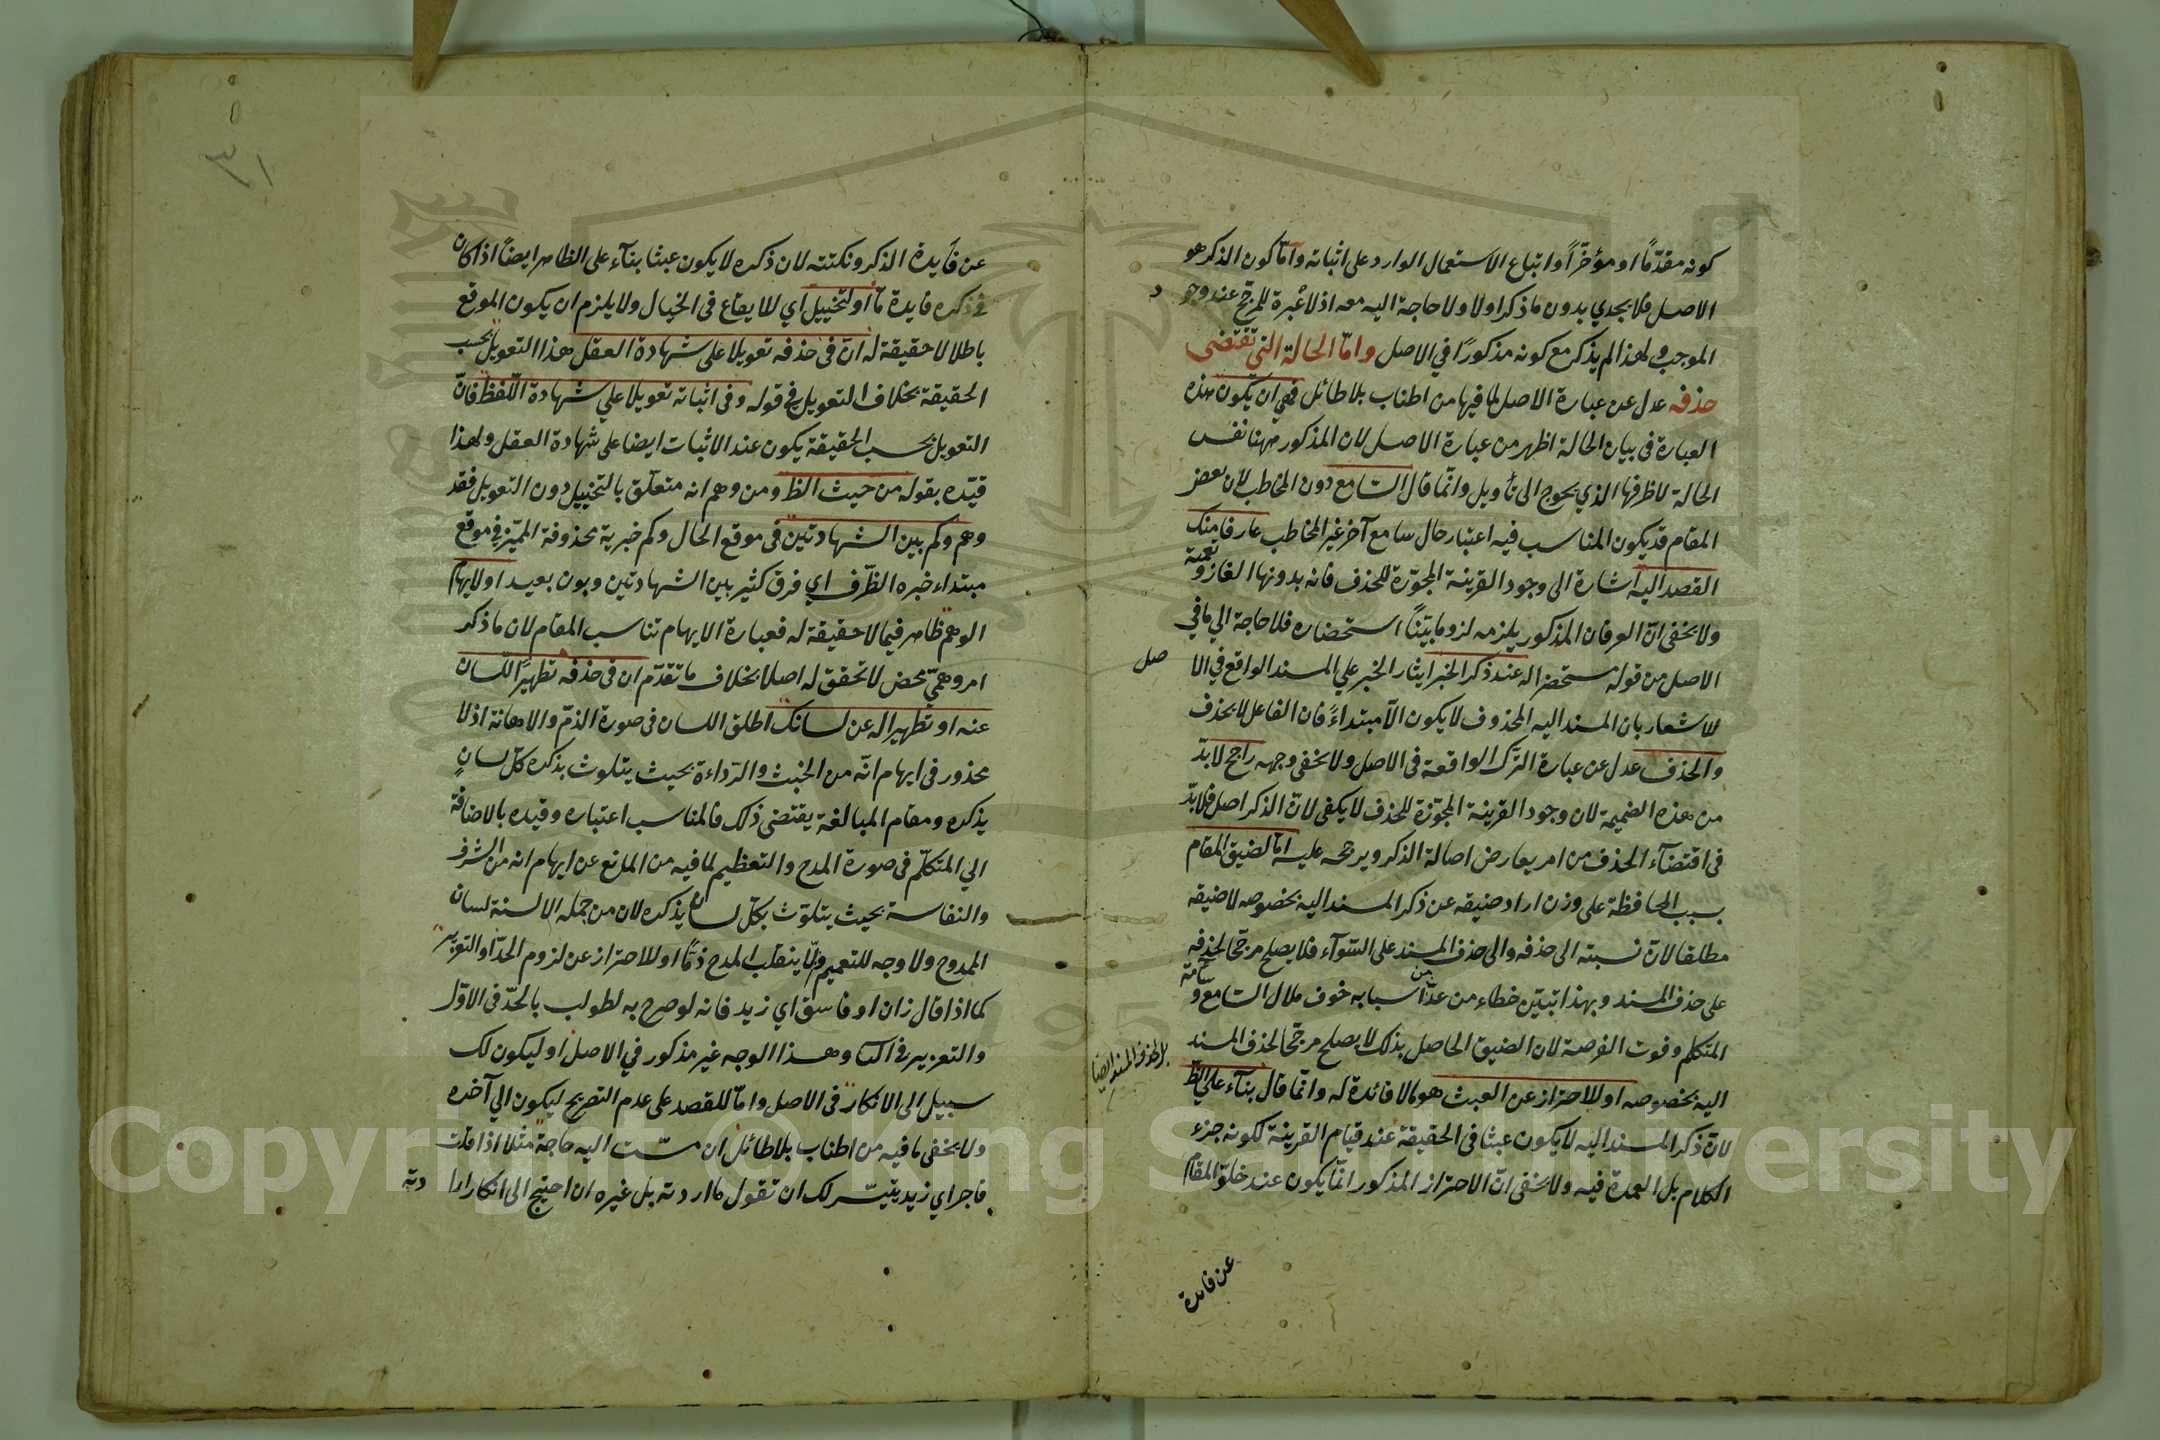 كونه مقدّمًا او مؤخّرًا واتباع الاستعمال الوارد على اثباته وأمّا كون الذكر هو
الاصل فلا يجدي بدون ما ذكر اولا ولا حاجة اليه معه اذ لا عبرة للمرجّح عند وجود
الموجب ولهذا لم يذكر مع كونه مذكورًا في الاصل وامّا الحالة التي تقتضى
حذفه عدل عن عبارة الاصل لما فيها من اطناب بلا طائل فهي ان يكون هذه
العبارة فى بيان الحالة اظهر من عبارة الاصل لان المذكور ههنا نفس
الحالة لا ظرفها الذي يحوج الى تأويل وانّما قال السّامع دون المخاطب لان بعض
المقام قد يكون المناسب فيه اعتبار حال سامع آخر غير المخاطب عارفا منك
القصد اليه اشارة الى وجود القرينة المجوّزة للحذف فانه بدونها الغاز وتعمية
ولا يخفى انّ العرفان المذكور يلزمه لزوما بيّنًا استحضاره فلا حاجة الي ما في
الاصل من قوله مستحضرا له عند ذكر الخبر ايثار الخبر علي المسند الواقع في الاصل
للاشعار بان المسند اليه المحذوف لا يكون الّا مبتداءً فان الفاعل لا يحذف
والحذف عدل عن عبارة الترك الواقعة فى الاصل ولا يخفى وجهه راجح لا بدّ
من هذه الضميمة لان وجود القرينة المجوّزة للحذف لا يكفى لانّ الذكر اصل فلا بدّ
فى اقتضآء الحذف من امر يعارض اصالة الذكر ويرجحه عليه امّا لضيق المقام
بسبب المحافظة على وزن اراد ضيقه عن ذكر المسند اليه بخصوصه لا ضيقه
مطلقا لانّ نسبته الى حذفه والى حذف المسند على السّوآء فلا يصلح مرجّحا لحذفه
على حذف المسند وبهذا تبيّن خطاء من عدّ من اسبابه خوف ملال السّامع وسآمة
المتكلم وفوت الفرصة لان الضيق الحاصل بذلك لا يصلح مرجّحا لحذف المسند
بل لحذف المسند ايضا
اليه بخصوصه او للاحتراز عن العبث هو ما لا فائدة له وانّما قال بنآء علي الظّ
لانّ ذكر المسند اليه لا يكون عبثا فى الحقيقة عند قيام القرينة لكونه جزء
الكلام بل العمدة فيه ولا يخفى انّ الاحتراز المذكور انّما يكون عند خلوّ المقام
عن فايدة
٣١
عن فأيدة الذكر ونكتته لان ذكره لا يكون عبثا بنآء على الظاهر ايضاً اذا كان
في ذكره فايدة مّا او لتخييل اي للايقاع فى الخيال ولا يلزم ان يكون الموقع
باطلا لا حقيقة له انّ فى حذفه تعويلا على شهادة العقل هذا التعويل بحسب
الحقيقة بخلاف التعويل في قوله وفى اثباته تعويلا علي شهادة اللّفظ فانّ
التعويل بحسب الحقيقة يكون عند الاثبات ايضا على شهادة العقل ولهذا
قيّده بقوله من حيث الظ ومن وهم انه متعلّق بالتخييل دون التعويل فقد
وهم وكم بين الشهادتين فى موقع الحال وكم خبرية محذوفة المميّز في موقع
مبتداء خبره الظّرف اي فرق كثير بين الشهادتين وبون بعيد او لايهام
الوهم ظاهر فيما لا حقيقة له فعبارة الايهام تناسب المقام لان ما ذكر
امر وهميّ محض لا تحقق له اصلا بخلاف ما تقدّم ان فى حذفه تطهيرًا للّسان
عنه او تطهيرا له عن لسانك اطلق اللسان فى صورة الذمّ والاهانة اذ لا
محذور فى ايهام انّه من الخبث والرّداءة بحيث يتلوث بذكره كلّ لسانٍ
يذكره ومقام المبالغة يقتضى ذلك فالمناسب اعتباره وقيده بالاضافة
الي المتكلّم فى صورة المدح والتعظيم لما فيه من المانع عن ايهام انه من الشرف
والنفاسة بحيث يتلوّث بكلّ لسان يذكره لان من جمله الالسنة لسان
الممدوح ولا وجه للتعميم والّا ينقلب المدح ذمًّا او للاحتراز عن لزوم الحدّ او التعزير
كما اذا قال زان او فاسق اي زيد فانه لو صرح به لطولب بالحدّ فى الاوّل
والتعزير في الثا وهذا الوجه غير مذكور في الاصل او ليكون لك
سبيل الى الانكار فى الاصل وامّا للقصد على عدم التصريح ليكون الي آخره
ولا يخفى ما فيه من اطناب بلا طائل ان مسّت اليه حاجة مثلا اذا قلت
فاجر اي زيد يتيسّر لك ان تقول ما اردته بل غيره ان احتيج الى انكار ارادته